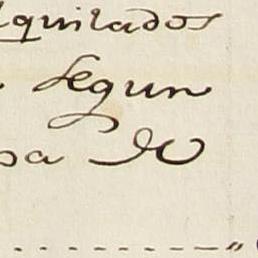 alquilados
segun
pa de